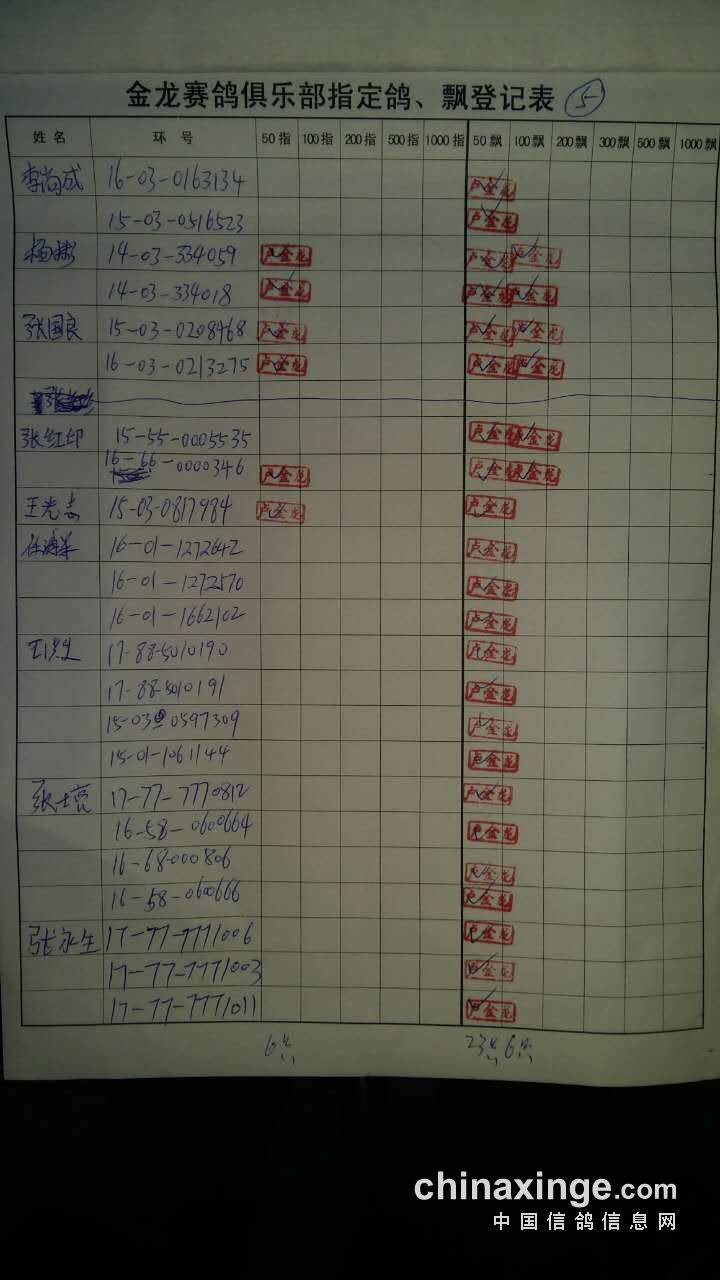 金龙赛鸽俱乐部指定鸽、飘登记表 5
姓名 环号 50指 100指 200指 500指 1000指 50飘 100飘 200飘 300飘 500飘 1000飘
李尚成 16-03-0163134 卢金龙
15-03-0516523 卢金龙
杨彬 14-03-334059 卢金龙 卢金龙 卢金龙
14-03-334018 卢金龙 卢金龙 卢金龙
张国良 15-03-0208468 卢金龙 卢金龙 卢金龙
16-03-0213275 卢金龙 卢金龙 卢金龙
张红印 15-55-0005535 卢金龙 卢金龙
16-66-0000346 卢金龙 卢金龙 卢金龙
王光志 15-03-0817984 卢金龙 卢金龙
16-01-1272642 卢金龙
16-01-1272570 卢金龙
16-01-1662102 卢金龙
17-88-5010190 卢金龙
17-88-5010191 卢金龙
15-03 0597309 卢金龙
15-01-1061144 卢金龙
张士亮 17-77-7770812 卢金龙
16-58-0600664 卢金龙
16-68-000806 卢金龙
16-58-0600666 卢金龙
张永生 17-77-7771006 卢金龙
17-77-7771003 卢金龙
17-77-7771011 卢金龙
6 23 6
chinaxinge.com
中国信鸽信息网